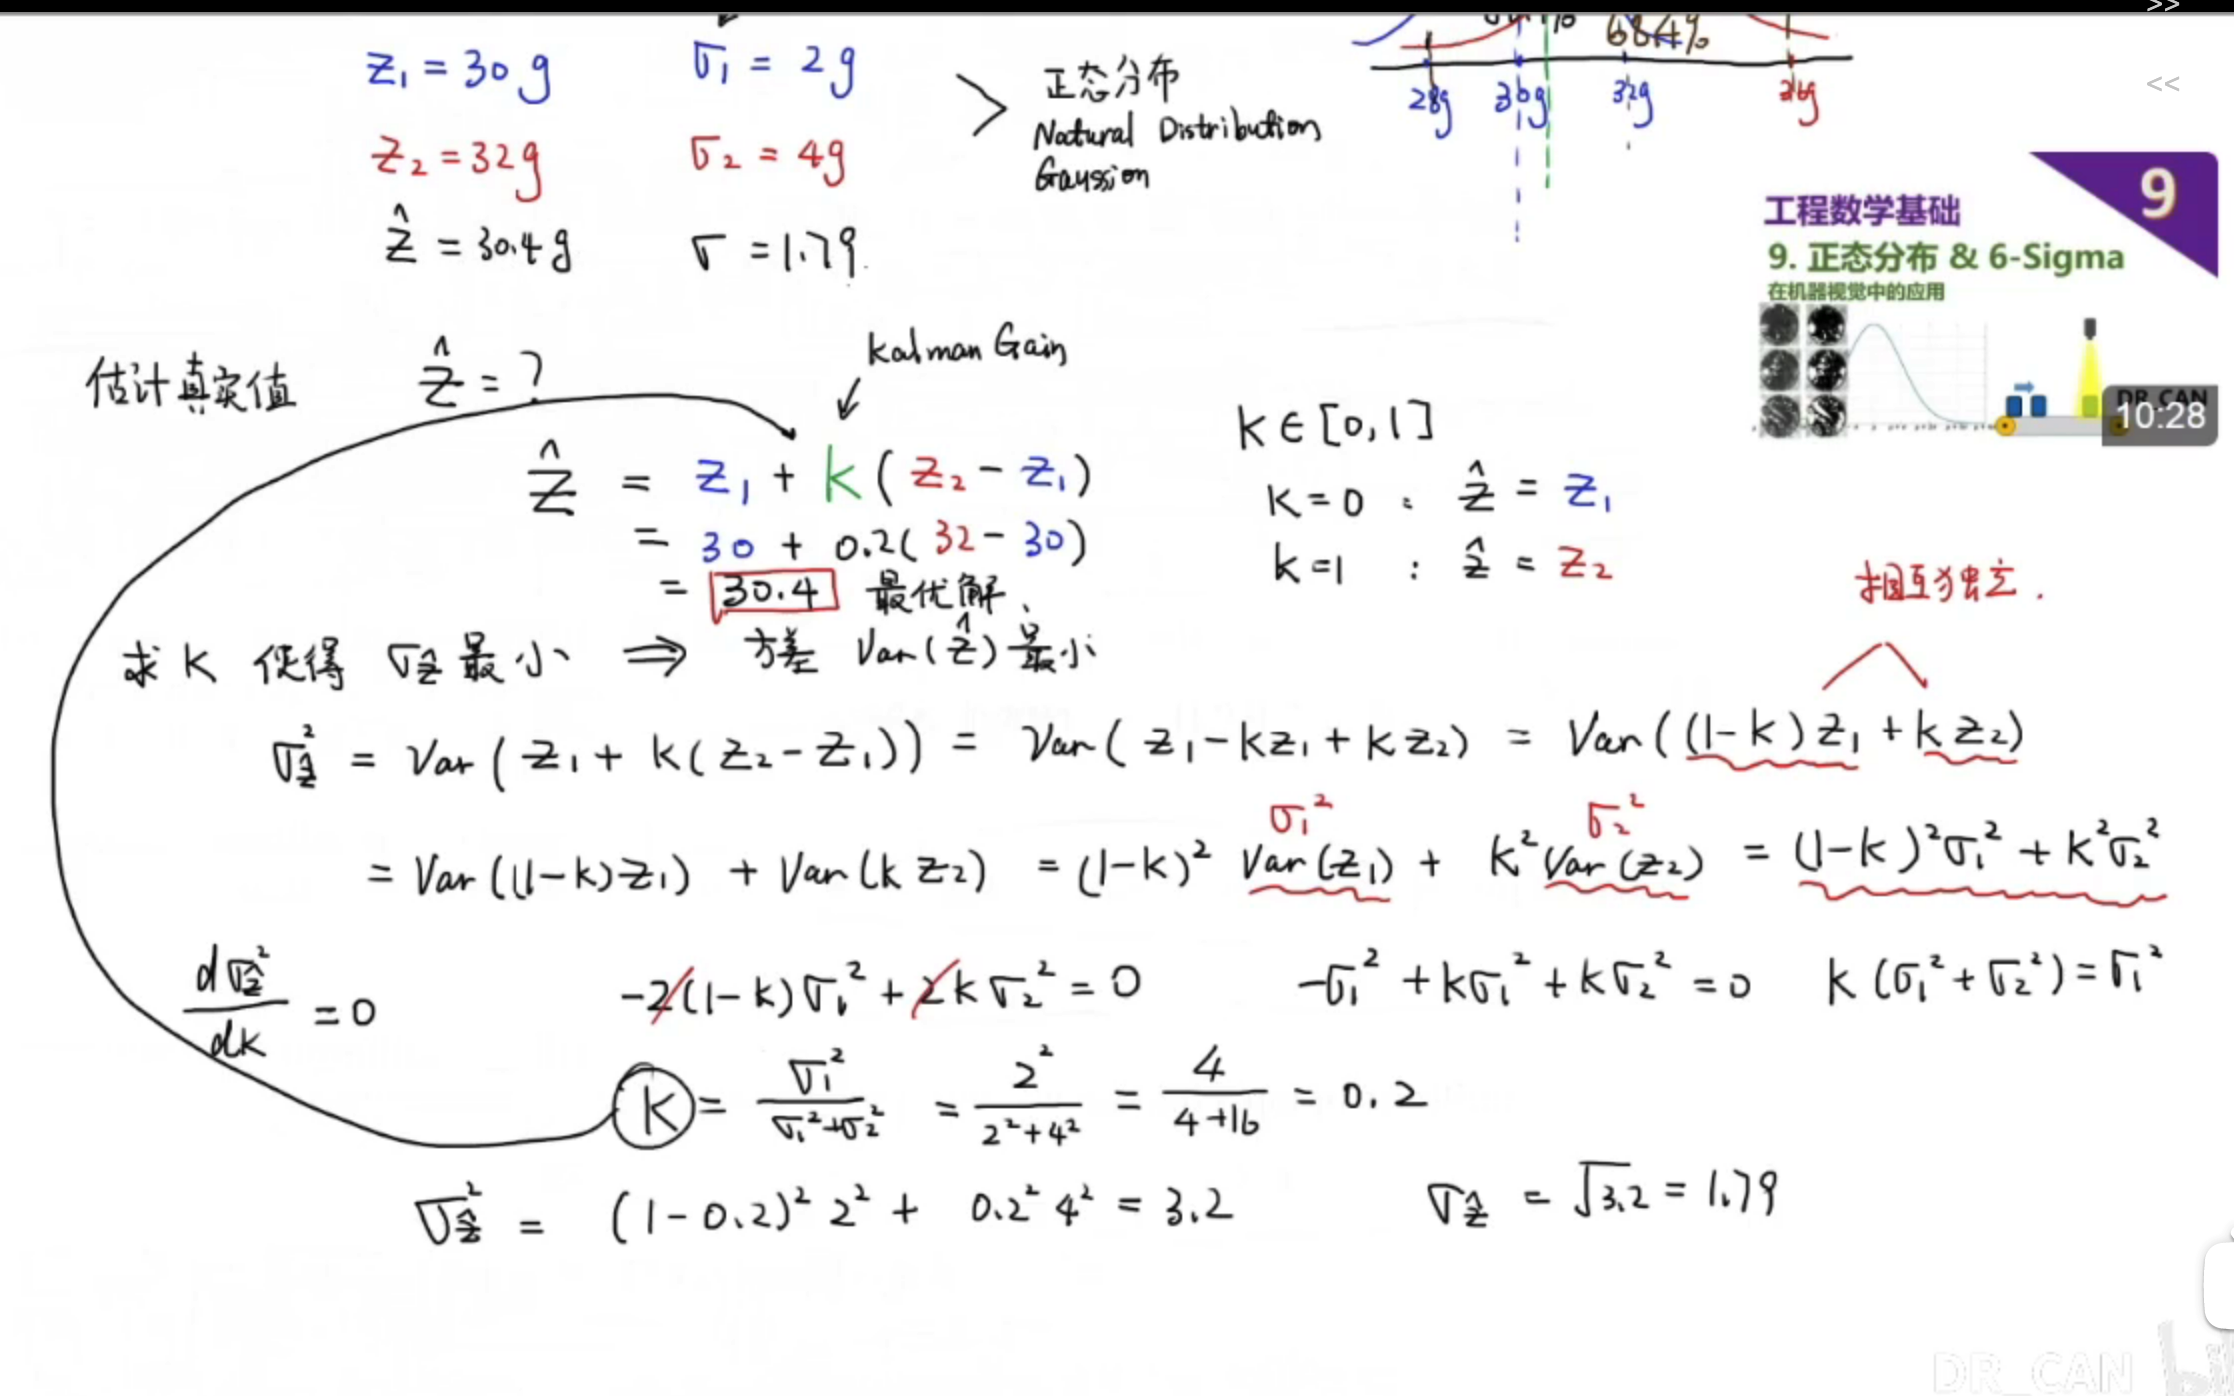 >>
z₁ = 30g σ₁ = 2g
z₂ = 32g σ₂ = 4g
ẑ = 30.4g σ = 1.79
正态分布
Natural Distribution
Gaussion
68.4%
28g 30g 32g 36g
<<
9
工程数学基础
9. 正态分布 & 6-Sigma
在机器视觉中的应用
DR_CAN
10:28
估计真实值 ẑ = ?
Kalman Gain
ẑ = z₁ + k(z₂ - z₁)
= 30 + 0.2(32 - 30)
= 30.4 最优解
k ∈ [0,1]
k = 0 : ẑ = z₁
k = 1 : ẑ = z₂
求 k 使得 σẑ 最小 ⇒ 方差 Var(ẑ) 最小
相互独立.
σẑ² = Var(z₁ + k(z₂ - z₁)) = Var(z₁ - kz₁ + kz₂) = Var((1-k)z₁ + kz₂)
σ₁² σ₂²
= Var((1-k)z₁) + Var(kz₂) = (1-k)² Var(z₁) + k² Var(z₂) = (1-k)²σ₁² + k²σ₂²
dσẑ²/dk = 0 -2(1-k)σ₁² + 2kσ₂² = 0 -σ₁² + kσ₁² + kσ₂² = 0 k(σ₁² + σ₂²) = σ₁²
k = σ₁²/(σ₁²+σ₂²) = 2²/(2²+4²) = 4/(4+16) = 0.2
σẑ² = (1-0.2)² 2² + 0.2² 4² = 3.2 σẑ = √3.2 = 1.79
DR_CAN